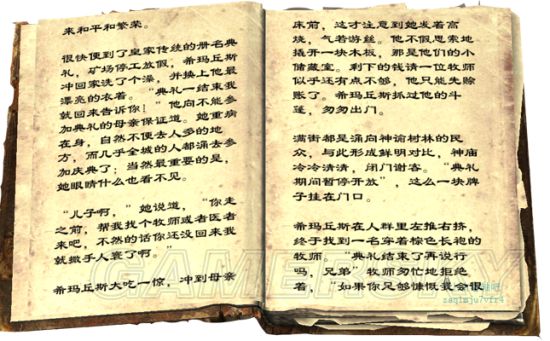 来和平和繁荣。
很快便到了皇家传统的册名典
礼，矿场停工放假，希玛丘斯
冲回家洗了个澡，并换上他最
漂亮的衣着。“典礼一结束我
就回来告诉你！”他向不能参
加典礼的母亲保证道。她重病
在身，自然不便去人多的地
方，而几乎全城的人都涌去参
加庆典了；当然最重要的是，
她眼睛什么也看不见。
“儿子啊，”她说道，“你走
之前，帮我找个牧师或者医者
来吧，不然的话你还没回来我
就撒手人寰了啊。”
希玛丘斯大吃一惊，冲到母亲
床前，这才注意到她发着高
烧，气若游丝。他不假思索地
撬开一块木板，那是他们的小
储藏室。剩下的钱请一位牧师
似乎还有点不够，他只能先赊
账了。希玛丘斯抓过他的斗
篷，匆匆出门。
满街都是涌向神谕树林的民
众，与此形成鲜明对比，神庙
冷冷清清，闭门谢客。“典礼
期间暂停开放”，这么一块牌
子挂在门口。
希玛丘斯在人群里左推右挤，
终于找到一名穿着棕色长袍的
牧师。“典礼结束了再说行
吗，兄弟”牧师匆忙地拒绝
着，“如果你足够慷慨我会很
GAMERSKY
zaq1mju7vfr4